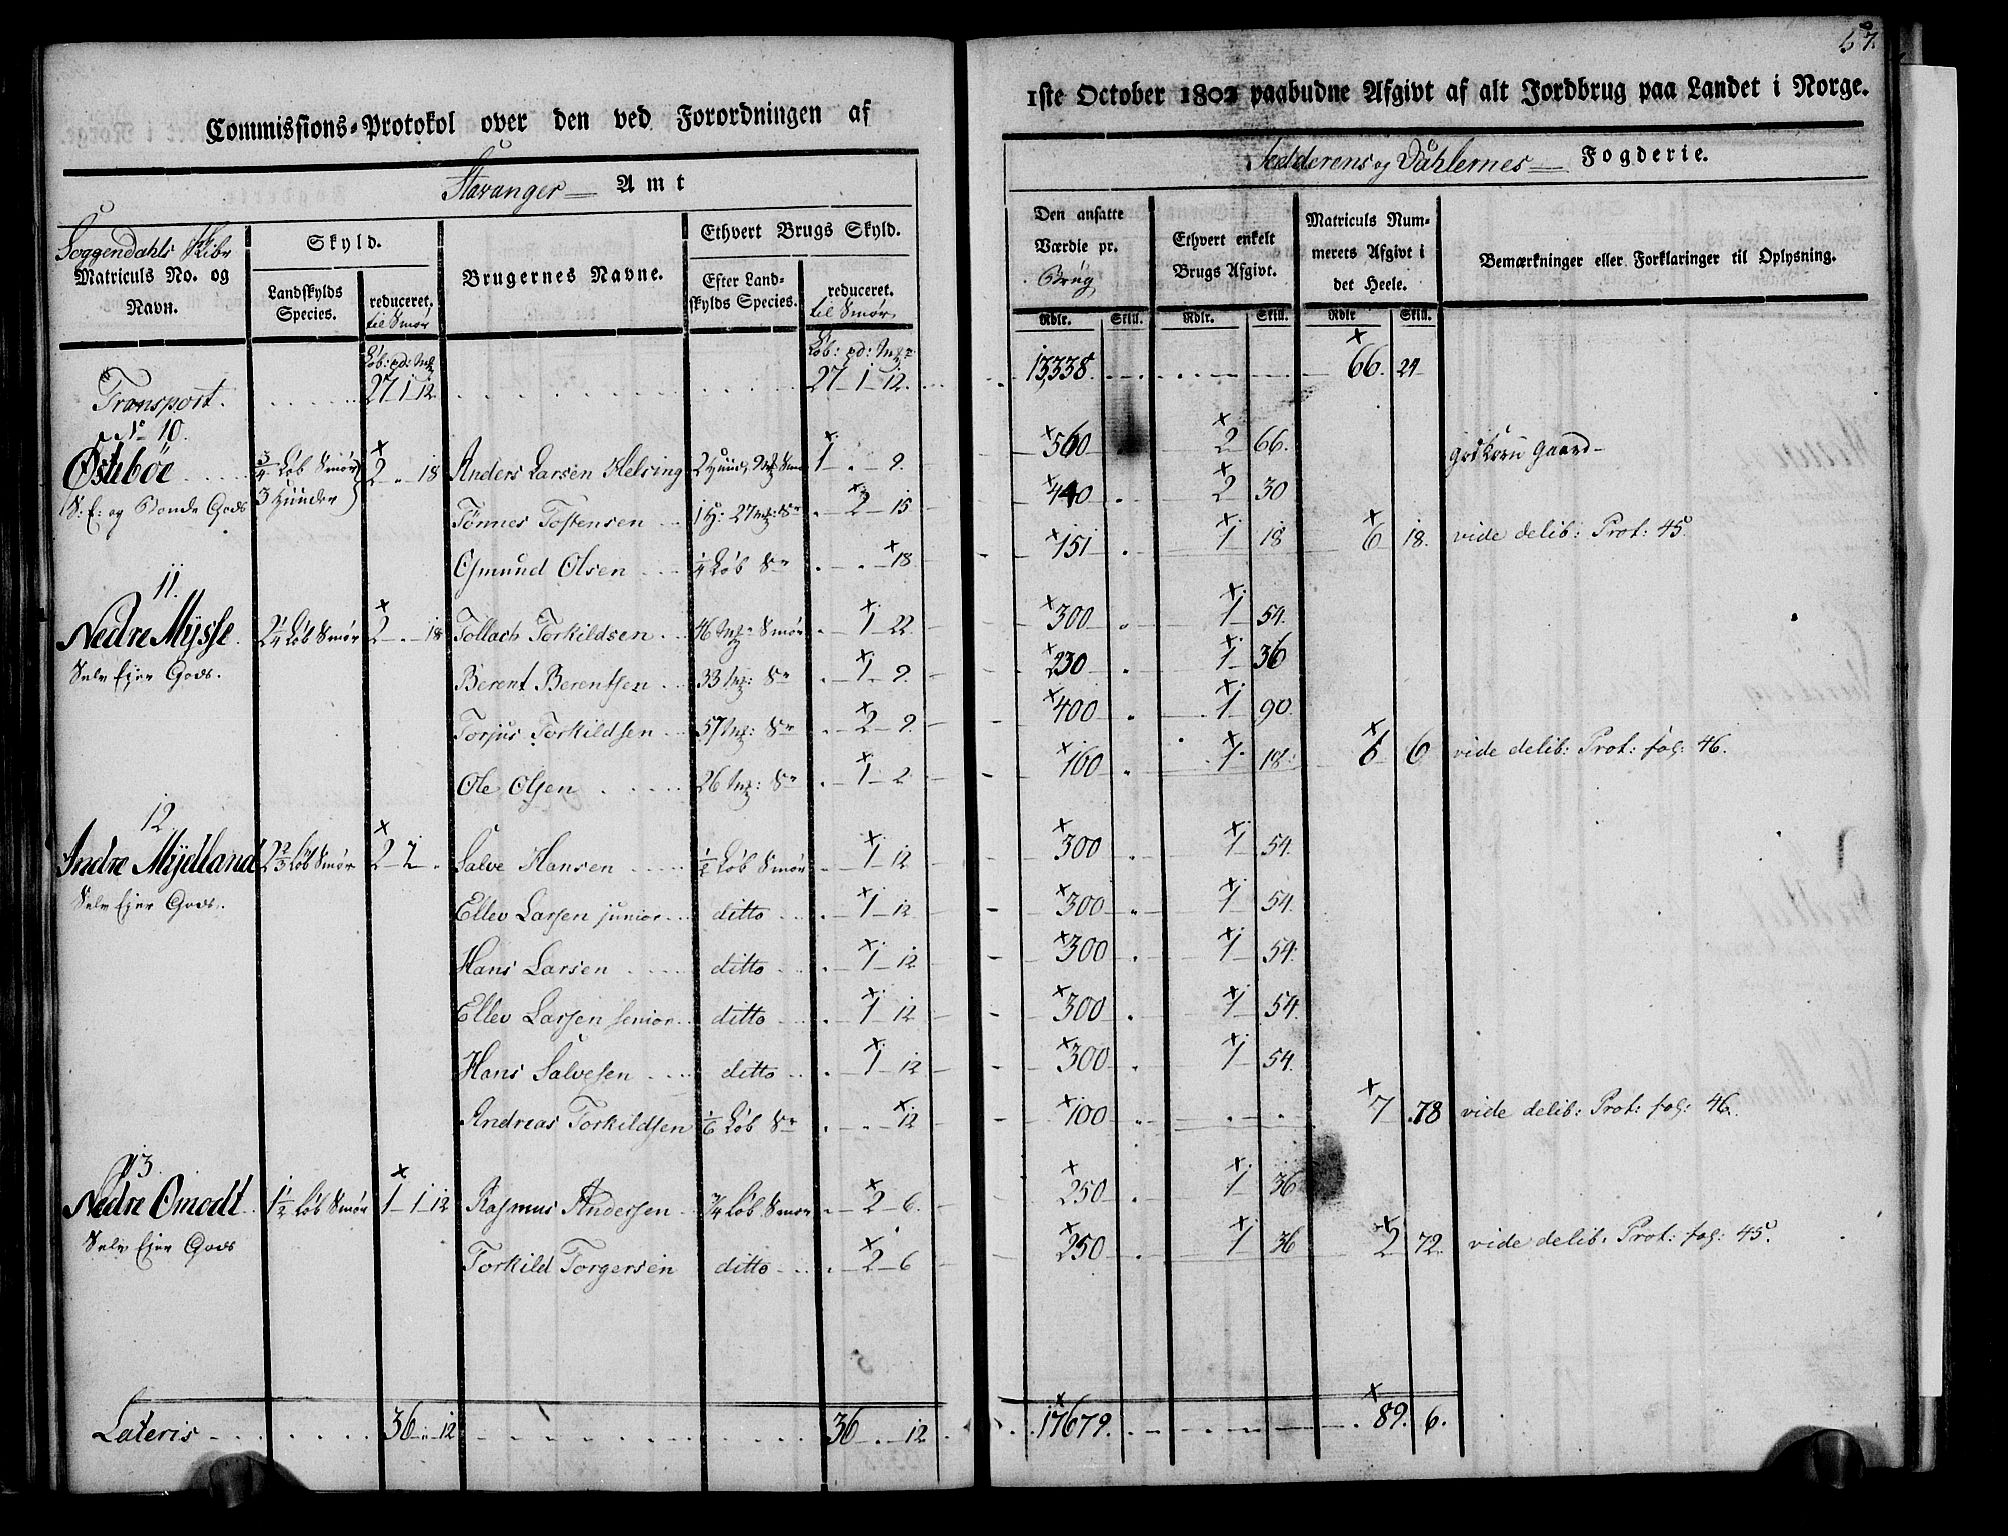 57.
Commissions-Protokol over den ved Forordningen af
1ste October 1802 paabudne Afgivt af alt Jordbrug paa Landet i Norge.
Stavanger Amt
Jedderens og Dahlernes Fogderie.
Soggendahls Skibr
Matriculs No. og Navn.
Skyld.
Landskylds Species.
reduceret. til Smør
Brugernes Navne.
Ethvert Brugs Skyld.
Efter Landskylds Species.
reduceret. til Smør
Den ansatte Værdie pr. Brug
Ethvert enkelt Brugs Afgivt.
Matriculs Nummerets Afgivt i det Heele.
Bemærkninger eller Forklaringer til Oplysning.
Rdlr. Skill. Rdlr. Skill. Rdlr Skill.
Transport. 27 1 12 27 1 12. 13338. 66. 24
No 10.
Østebøe 3/4 Løb Smør 2 18 Anders Larsen Helsing 1 . 9. 560 2 66.
S: E: og Bonde Gods 3 Huuder Tönnes Tostensen 1 H: 27 mk: Sr 2 15 440 2 30
Osmund Olsen 1/4 Løb Sr 18 151 1 18 6 18. vide delib: Prot: 45.
11.
Nedre Mysse 2 1/4 Løb Smør 2 . 18 Tollach Torkildsen 46 mk Smør 1 22 300 1 54.
Selv Ejer Gods. Berent Berentsen 33 mk: Sr 1 9. 230 1 36
Torjus Torkildsen 57 mk: Sr 2 9. 400 1 90.
Ole Olsen 26 mk: Sr 1 2 160 1 18. 6 6 vide delib: Prot: fol: 46.
12
Andre Mydland 2 2/3 Løb Smør 2 2 . Salve Hansen 1/2 Løb Smør 1 12 300 1 54.
Selv Ejer Gods. Ellev Larsen junior ditto 1 12 300 1 54.
Hans Larsen ditto 1 12 300 1 54.
Ellev Larsen senior ditto 1 12 300 1 54.
Hans Salvesen ditto 1 12 300 1 54.
Andreas Torkildsen 1/6 Løb Sr 12 100 7 78 vide delib: Prot: fol: 46.
13.
Nedre Omodt 1 1/2 Løb Smør 1 1 12 Rasmus Andersen 3/4 Løb Smør 2 6. 250 1 36
Selv Ejer Gods Torkild Torgersen ditto 2 6 250 1 36 2 72. vide delib: Prot: fol: 45.
Lateris 36 . 12 36 . 12 17679. 89. 6.